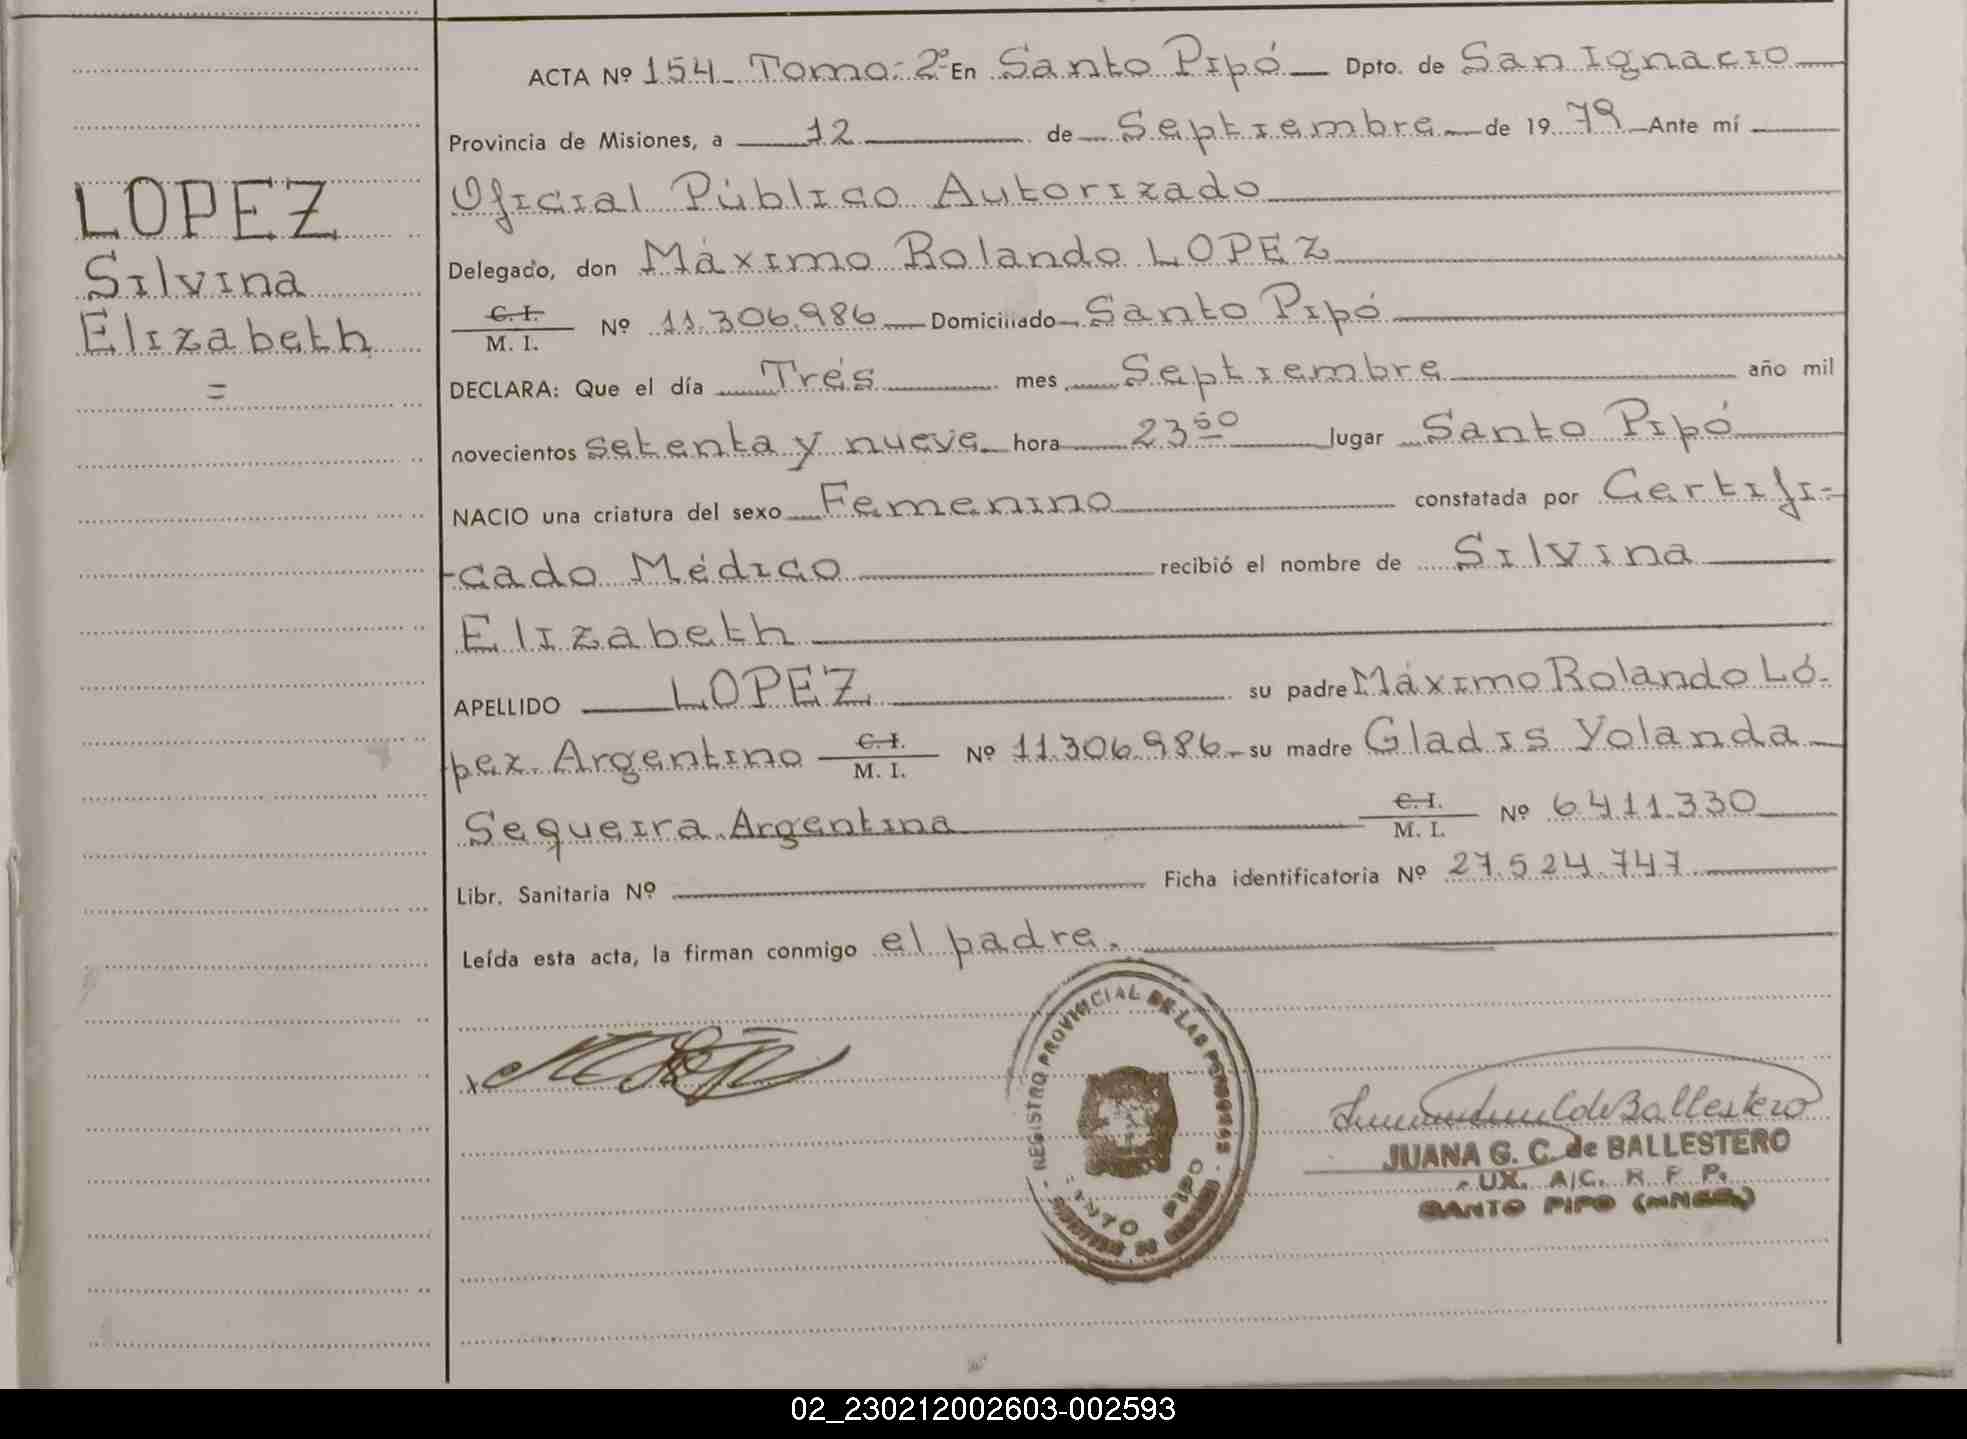 ACTA Nº 154 Tomo: 2º En Santo Pipó Dpto. de San Ignacio
Provincia de Misiones, a 12 de Septiembre de 1979 Ante mí
Oficial Público Autorizado
LOPEZ
Silvina
Elizabeth
=
Delegado, don Máximo Rolando LOPEZ
C. I.
M. I. Nº 11.306.986 Domiciliado Santo Pipó
DECLARA: Que el día Trés mes Septiembre año mil
novecientos setenta y nueve hora 23 50 lugar Santo Pipó
NACIO una criatura del sexo Femenino constatada por Certifi-
-cado Médico recibió el nombre de Silvina
Elizabeth
APELLIDO LOPEZ su padre Máximo Rolando Ló-
pez. Argentino C. I. M. I. Nº 11.306.986 su madre Gladis Yolanda
Sequeira. Argentina C. I. M. I. Nº 6.411.330
Libr. Sanitaria Nº Ficha identificatoria Nº 27.524.747
Leída esta acta, la firman conmigo el padre.
REGISTRO PROVINCIAL DE LAS PERSONAS
SANTO PIPO
de Ballestero
JUANA G. C. de BALLESTERO
AUX. A/C. R. P. P.
SANTO PIPO (MNES.)
02_230212002603-002593